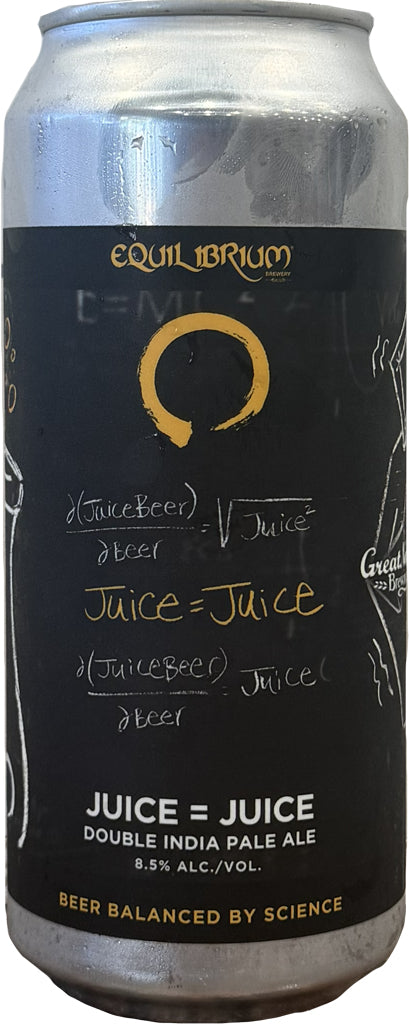 EQUILIBRIUM
BREWERY
∂(JuiceBeer)
∂Beer
= √Juice²
Juice = Juice
∂(JuiceBeer)
∂Beer
= Juice
Great
JUICE = JUICE
DOUBLE INDIA PALE ALE
8.5% ALC./VOL.
BEER BALANCED BY SCIENCE